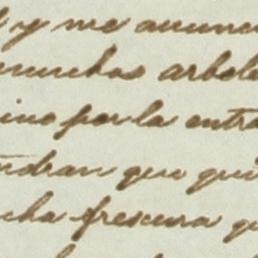 y me anunci
muchos arbole
ino por la entra
ndran que qui
cha frescura q